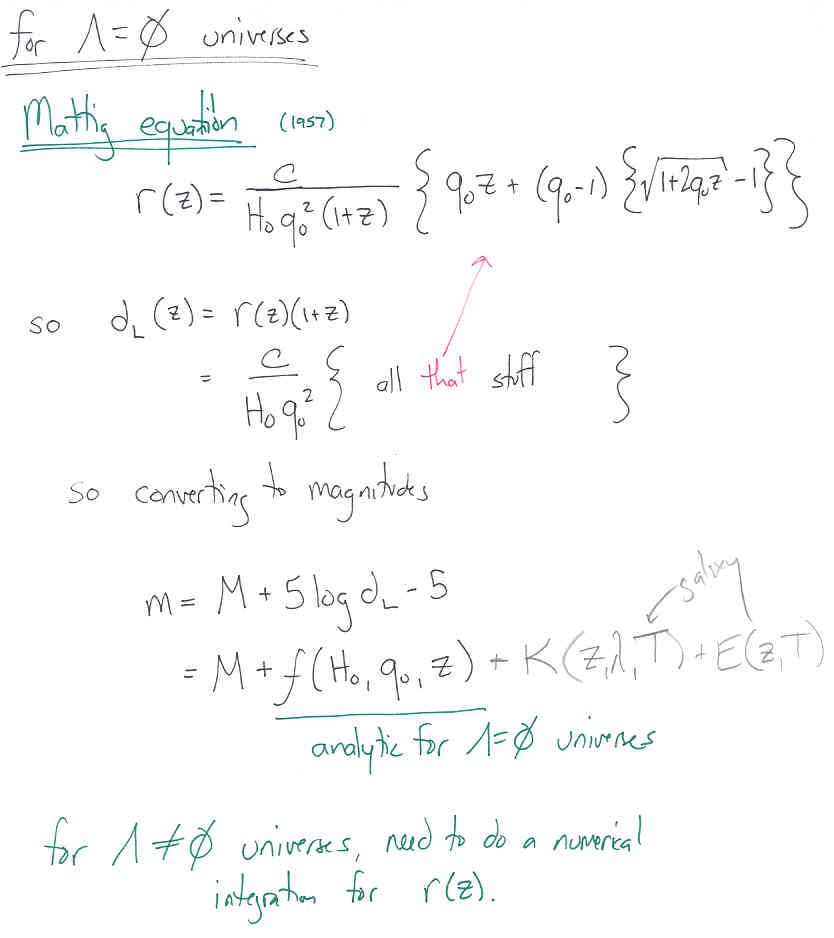 for Λ=∅ universes
Mattig equation (1957)
r(z)= c / H₀q₀²(1+z) { q₀z + (q₀-1) {√(1+2q₀z) -1}}
so d_L(z) = r(z)(1+z)
= c / H₀q₀² { all that stuff }
so converting to magnitudes
m = M + 5 log d_L - 5
galaxy
= M + f(H₀, q₀, z) + K(z,λ,T) + E(z,T)
analytic for Λ=∅ universes
for Λ≠∅ universes, need to do a numerical
integration for r(z).